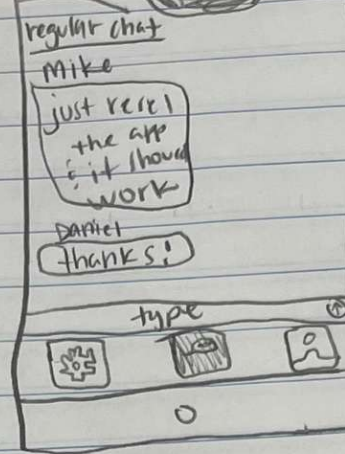 regular chat
Mike
just reset
the app
& it should
work
Daniel
thanks!
type